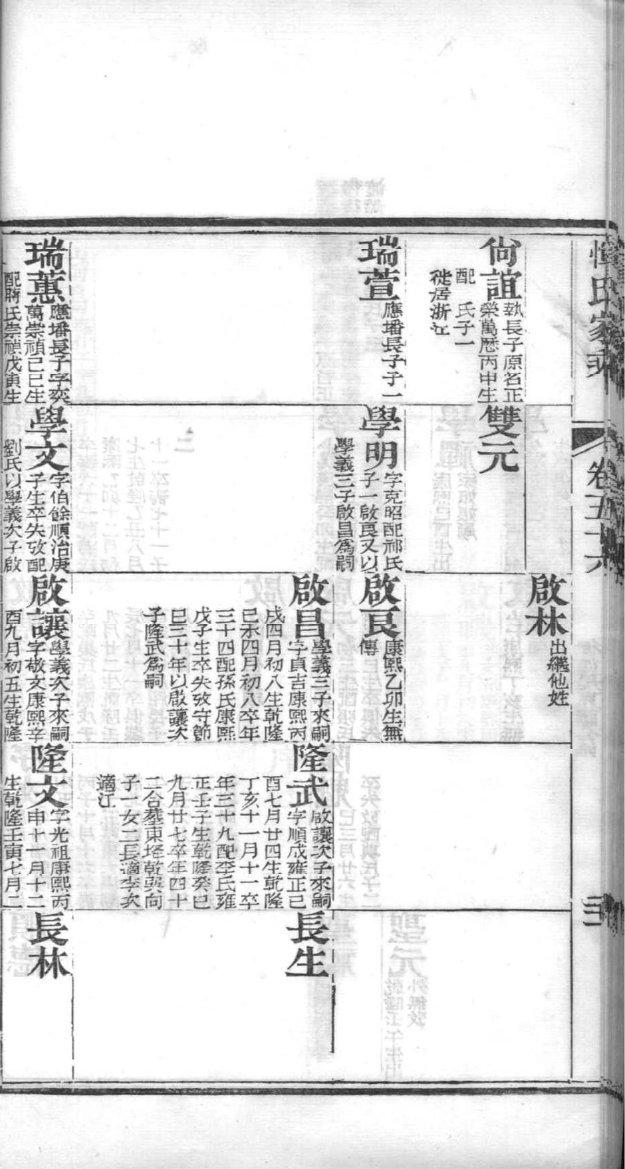 惲氏家乘
卷五十六
尙誼
執長子原名正
榮萬歷丙申生
配　氏子一
徙居浙江
雙元
啟林
出繼他姓
瑞萱
應墦長子子一
學明
字克昭配祁氏
子一啟良又以
學義三子啟昌爲嗣
啟良
康熙乙卯生無
傳
啟昌
學義三子來嗣
字貞吉康熙丙
戌四月初八生乾隆
己未四月初八卒年
三十四配孫氏康熙
戊子生卒失攷守節
巳三十年以啟讓次
子隆武爲嗣
隆武
啟讓次子來嗣
字順成雍正己
酉七月廿四生乾隆
丁亥十一月十一卒
年三十九配李氏雍
正壬子生乾隆癸巳
九月廿七卒年四十
二合墓東塔乾巽向
子一女二長適李次
適江
長生
瑞蕙
應墦長子字奕
萬崇禎己巳生
配蔣氏崇禎戊寅生
學文
字伯餘順治庚
子生卒失攷配
劉氏以學義次子啟
啟讓
學義次子來嗣
字敬文康熙辛
酉九月初五生乾隆
隆文
字光祖康熙丙
申十一月十二
生乾隆壬寅七月二
長林